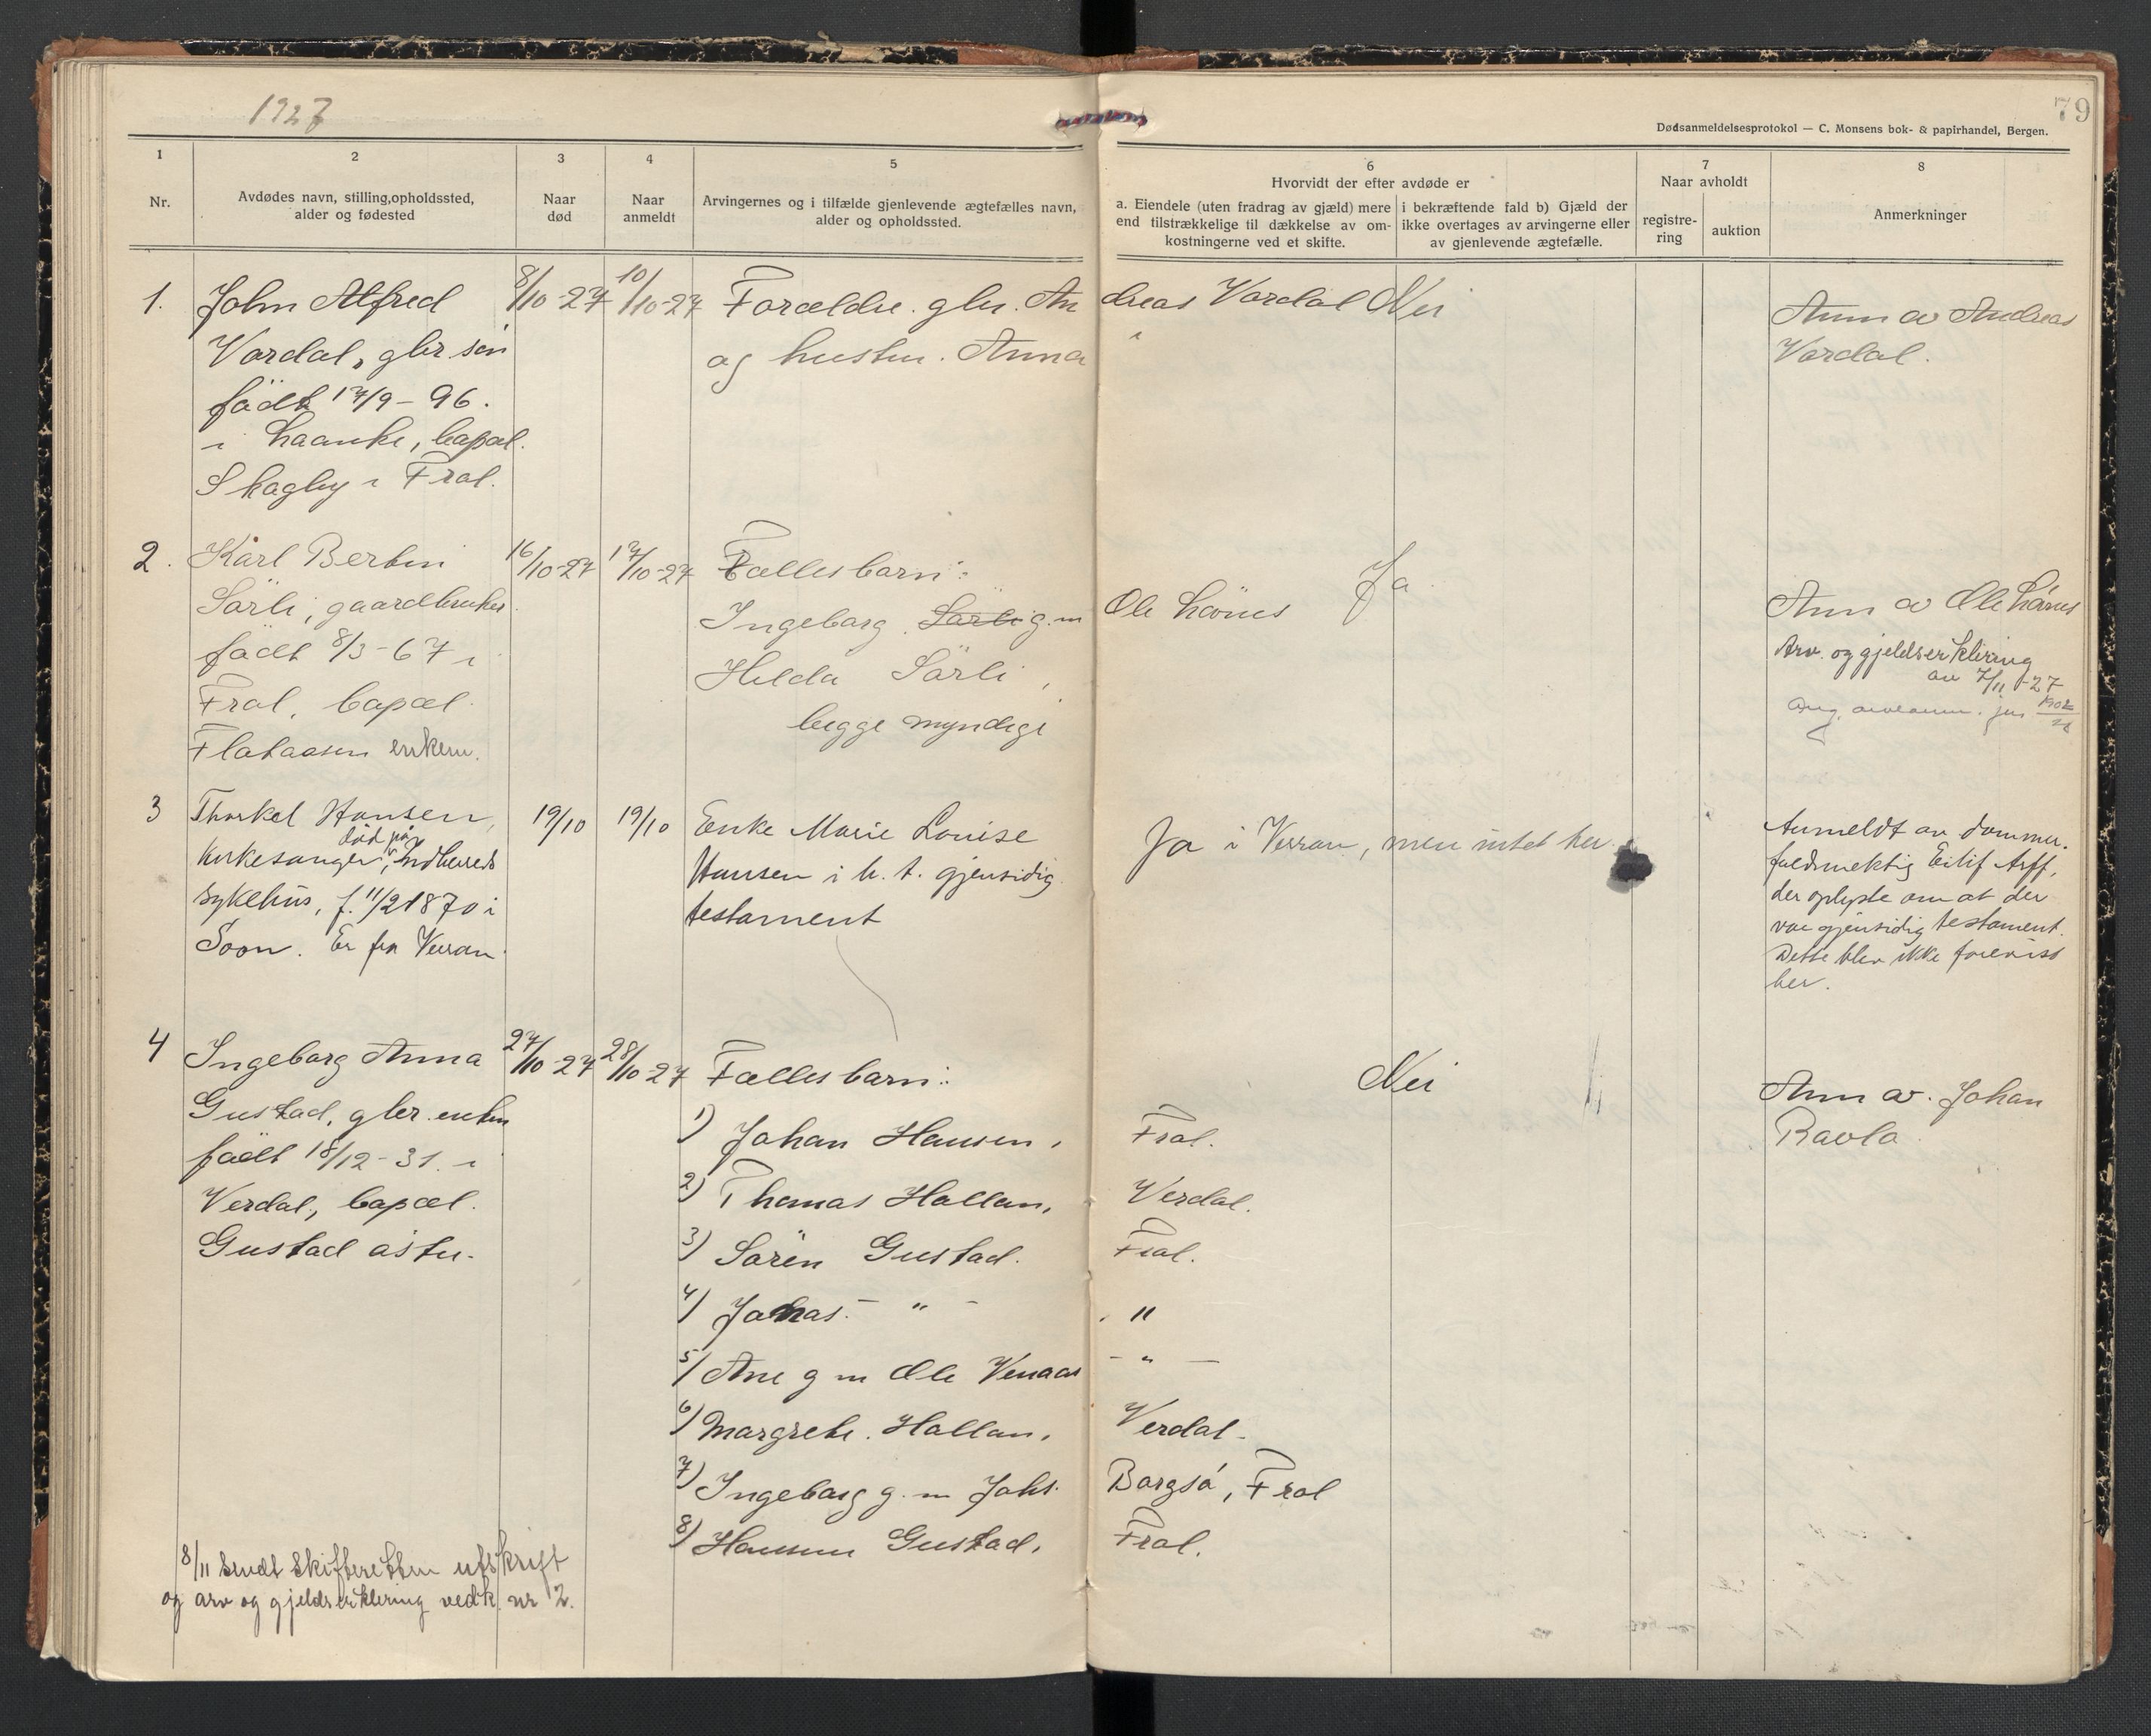 1927
79
Dødsanmeldelsesprotokol — C. Monsens bok- & papirhandel, Bergen.
1
Nr.
2
Avdødes navn, stilling,opholdssted,
alder og fødested
3
Naar
død
4
Naar
anmeldt
5
Arvingernes og i tilfælde gjenlevende ægtefælles navn,
alder og opholdssted.
6
Hvorvidt der efter avdøde er
a. Eiendele (uten fradrag av gjæld) mere
end tilstrækkelige til dækkelse av om-
kostningerne ved et skifte.
i bekræftende fald b) Gjæld der
ikke overtages av arvingerne eller
av gjenlevende ægtefælle.
7
Naar avholdt
registre-
ring
auktion
8
Anmerkninger
1.
John Alfred
Vordal, gbr søn
født 17/9-96.
i , bopæl.
Skogby i Frol.
8/10-27
10/10-27
Forældre. gbr. Andreas Vordal
og hustru. Anna
Nei
Anm av Andreas
Vordal.
2.
Karl Bertin
Sørli, gaardbruker
født 8/3-67 i
Frol, bopæl
enkem.
16/10-27
17/10-27
Fællesbarn:
Ingeborg Sørli g.m Ole
Helda Sørli,
begge myndige
Ja
Anm av Ole
Arv. og gjeldserklæring
av 7/11-27
3
Thorkel Hansen,
Kirkesanger, død på Indherreds
sykehus, f. 11/2 1870 i
Soon. Er fra Verran
19/10
19/10
Enke Marie Louise
Hansen i h. t. gjensidig
testament
Ja i Verran, men intet her.
Anmeldt av dommer-
fuldmektig Eilif Arff,
der oplyste om at der
var gjensidig testament.
Dette blev ikke forevist
her.
4
Ingeborg Anna
Gustad, gbr. enke
født 18/12-31. i
Verdal, bopæl.
Gustad østre.
27/10-27
28/10-27
Fællesbarn:
Nei
Anm av. Johan
Ravlo
1) Johan Hansen, Frol.
2) Thomas Hallan, Verdal.
3) Søren Gustad. Frol.
4) Johas - " - "
5) Ane g m Ole Venaas - " -
6) Margrete. Hallan, Verdal.
7) Ingeborg g. m Johs. Borgsø, Frol
8) Hansine Gustad, Frol.
8/11 sendt Skifteretten utskrift
og arv og gjeldserklæring vedk. nr 2.